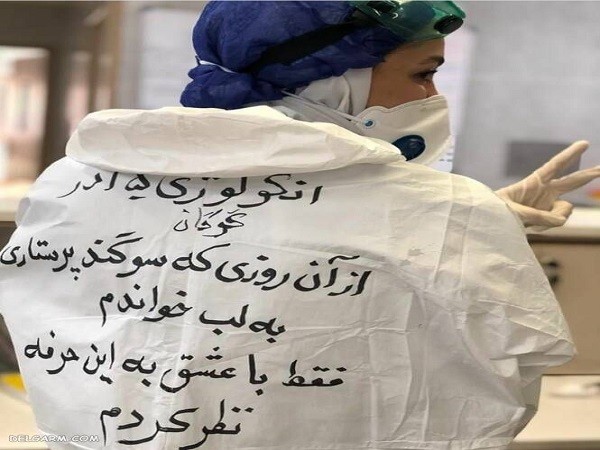 انکولوژی ۵ آذر
گرگان
از آن روزی که سوگند پرستاری
به لب خواندم
فقط با عشق به این حرفه
نظر کردم
DELGARM.COM